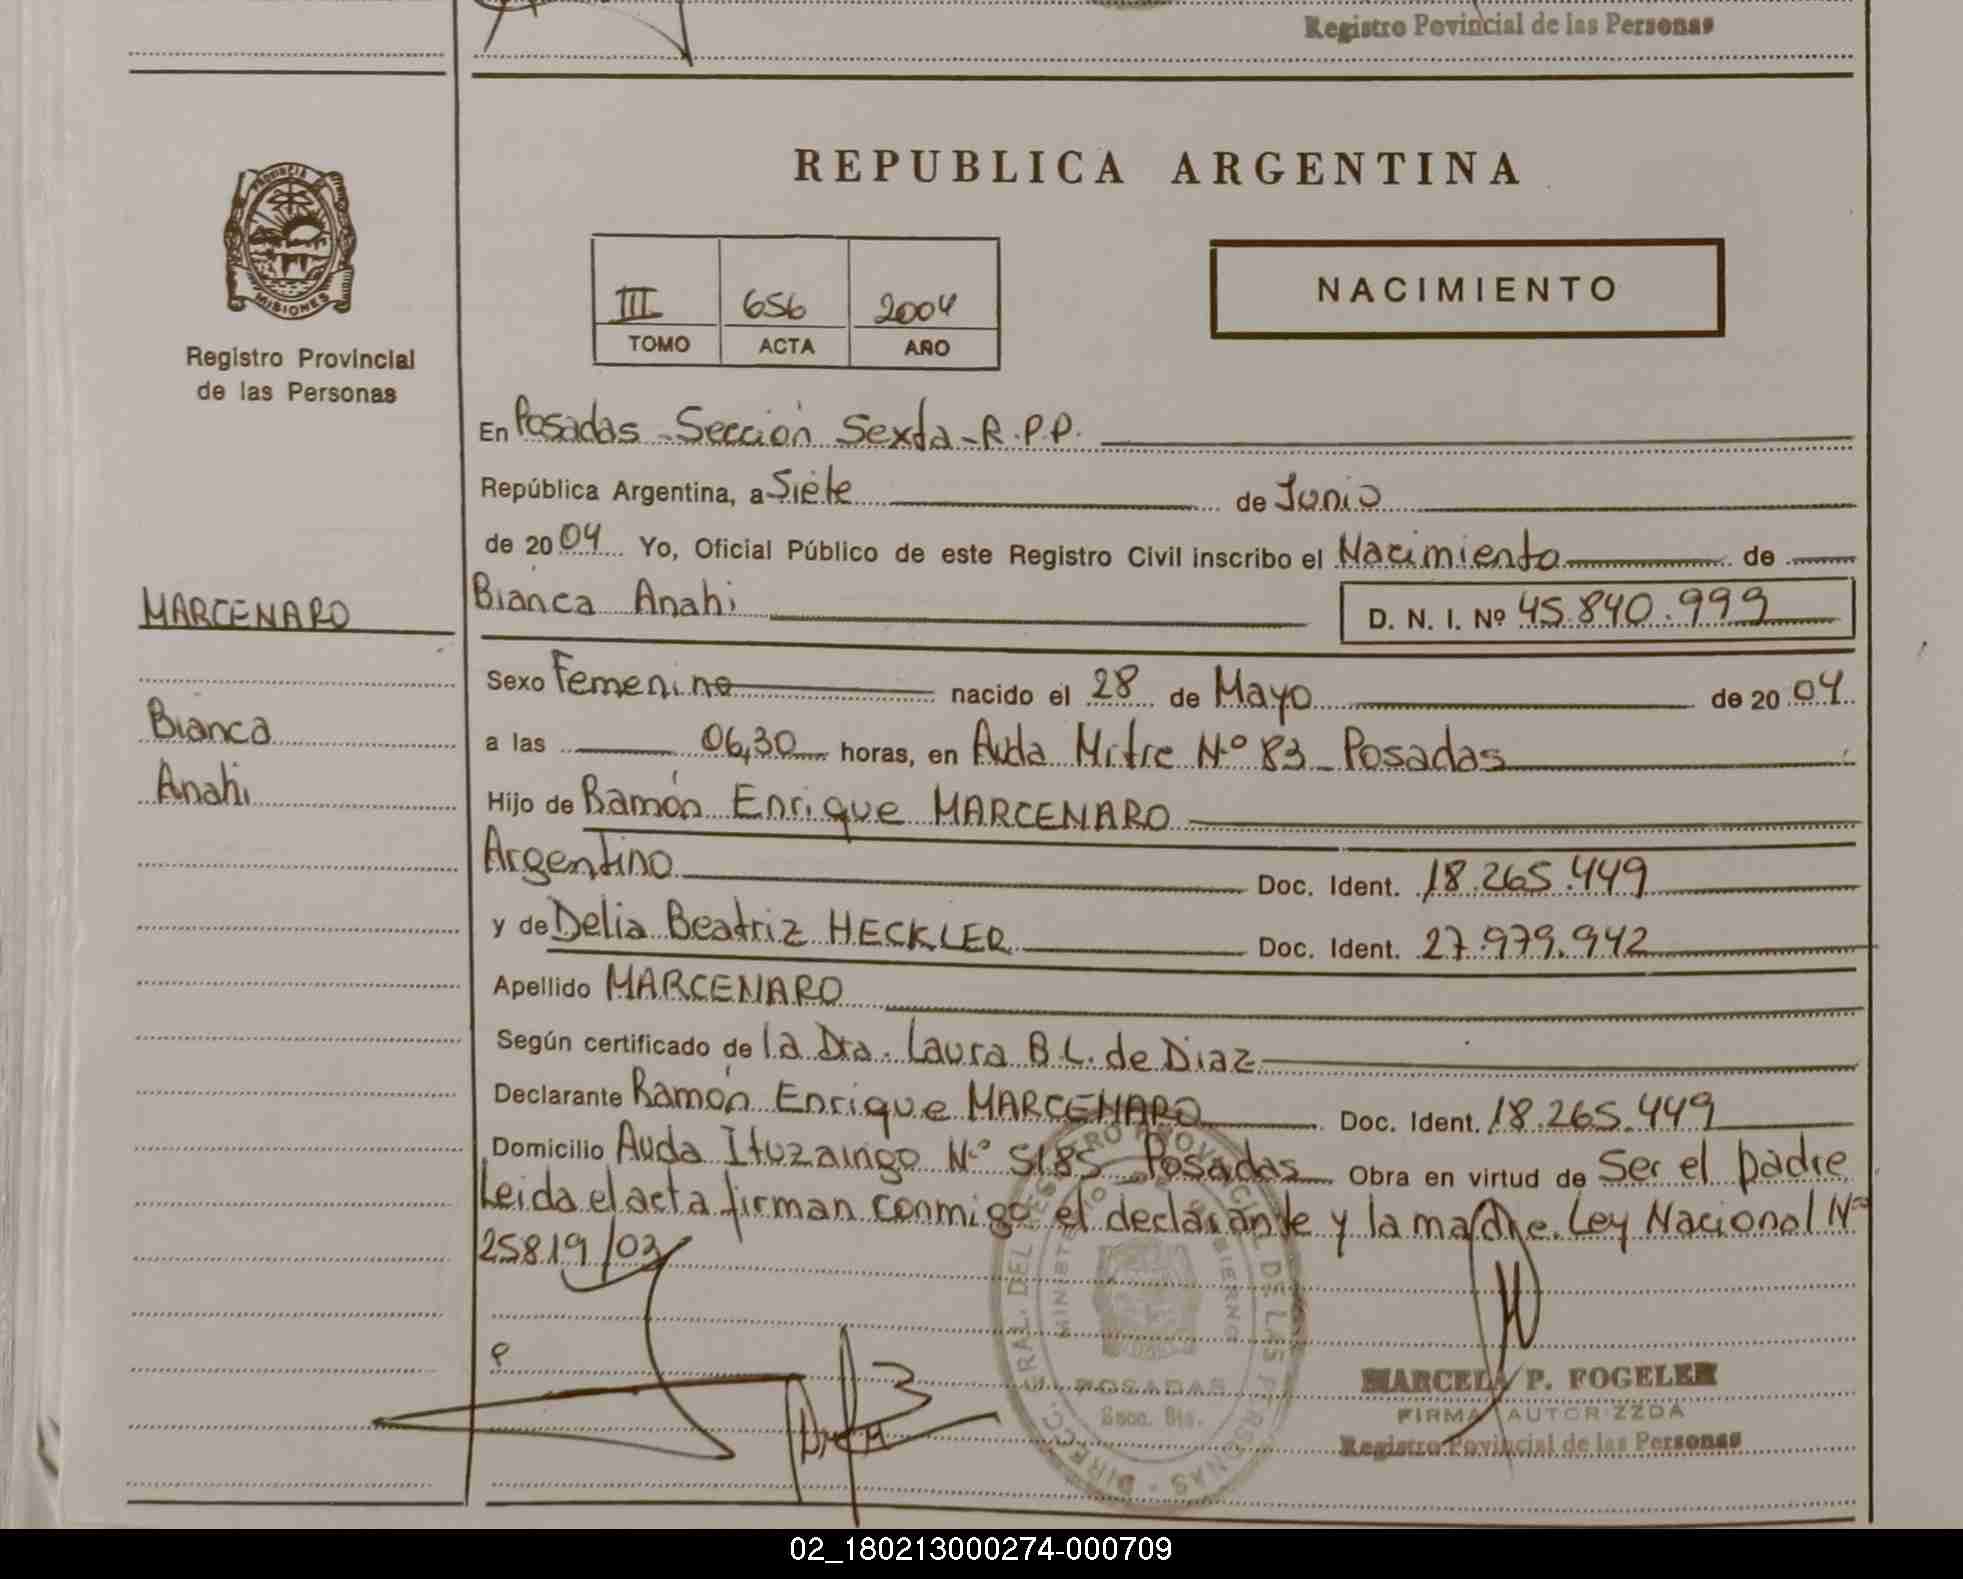 Registro Povincial de las Personas
REPUBLICA ARGENTINA
PROVINCIA DE
MISIONES
Registro Provincial
de las Personas
III 656 2004
TOMO ACTA AÑO
NACIMIENTO
En Posadas - Sección Sexta - R.P.P.
República Argentina, a Siete de Junio
de 2004 Yo, Oficial Público de este Registro Civil inscribo el Nacimiento de
MARCENARO
Bianca
Anahi
Bianca Anahi D. N. I. Nº 45.840.999
Sexo Femenino nacido el 28 de Mayo de 2004
a las 06,30 horas, en Avda Mitre Nº 83 - Posadas
Hijo de Ramón Enrique MARCENARO
Argentino Doc. Ident. 18.265.449
y de Delia Beatriz HECKLER Doc. Ident. 27.979.942
Apellido MARCENARO
Según certificado de la Dra. Laura B.L. de Diaz
Declarante Ramón Enrique MARCENARO Doc. Ident. 18.265.449
Domicilio Avda Ituzaingo Nº 5185 - Posadas Obra en virtud de Ser el padre
Leida el acta firman conmigo el declarante y la madre. Ley Nacional Nº
25819/03
DIRECC. GRAL. DEL REGISTRO PROVINCIAL DE LAS PERSONAS
MINISTERIO DE GOBIERNO
POSADAS
Secc. 6ta.
MARCELA P. FOGELER
FIRMA AUTORIZZDA
Registro Povincial de las Personas
02_180213000274-000709